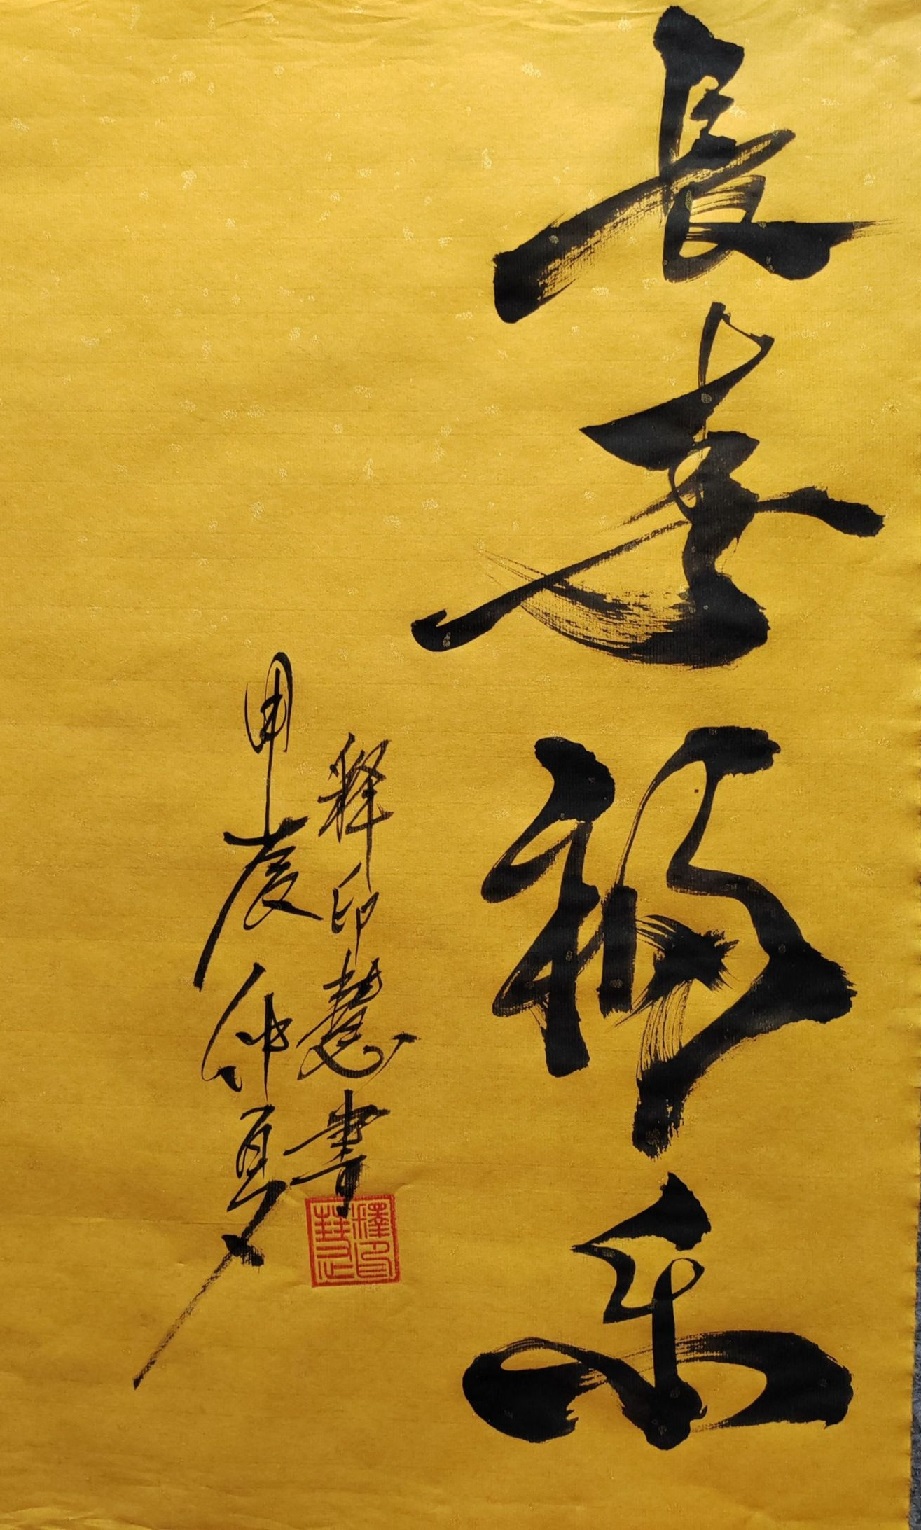 長壽福乐
释印慧書
甲辰仲夏
釋印慧